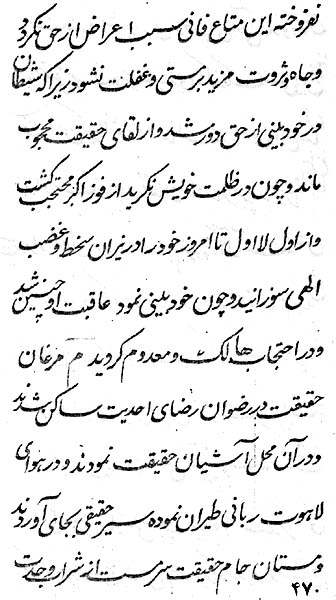 نفروخته این متاع فانی سبب اعراض از حق نکردد
و جاه و ثروت مزید پرستی و غفلت نشود زیرا که شیطان
در خود بینی از حق دور شد و از لقای حقیقت محجوب
ماند و چون در ظلمت خویش نکرید از فوز اکبر محتجب کشت
و از اول لا اول تا امروز خود را در نیران سخط و غضب
الهی سوزانید و چون خود بینی نمود عاقبت او چنین شد
و در احتجاب هالک و معدوم کردید هم مرغان
حقیقت در رضوان رضای احدیت ساکن شدند
و در آن محل آشیان حقیقت نمودند و در هوای
لاهوت ربانی طیران نموده سیر حقیقی بجای آوردند
و مستان جام حقیقت سرمست از شراب وحدت
۴۷۰